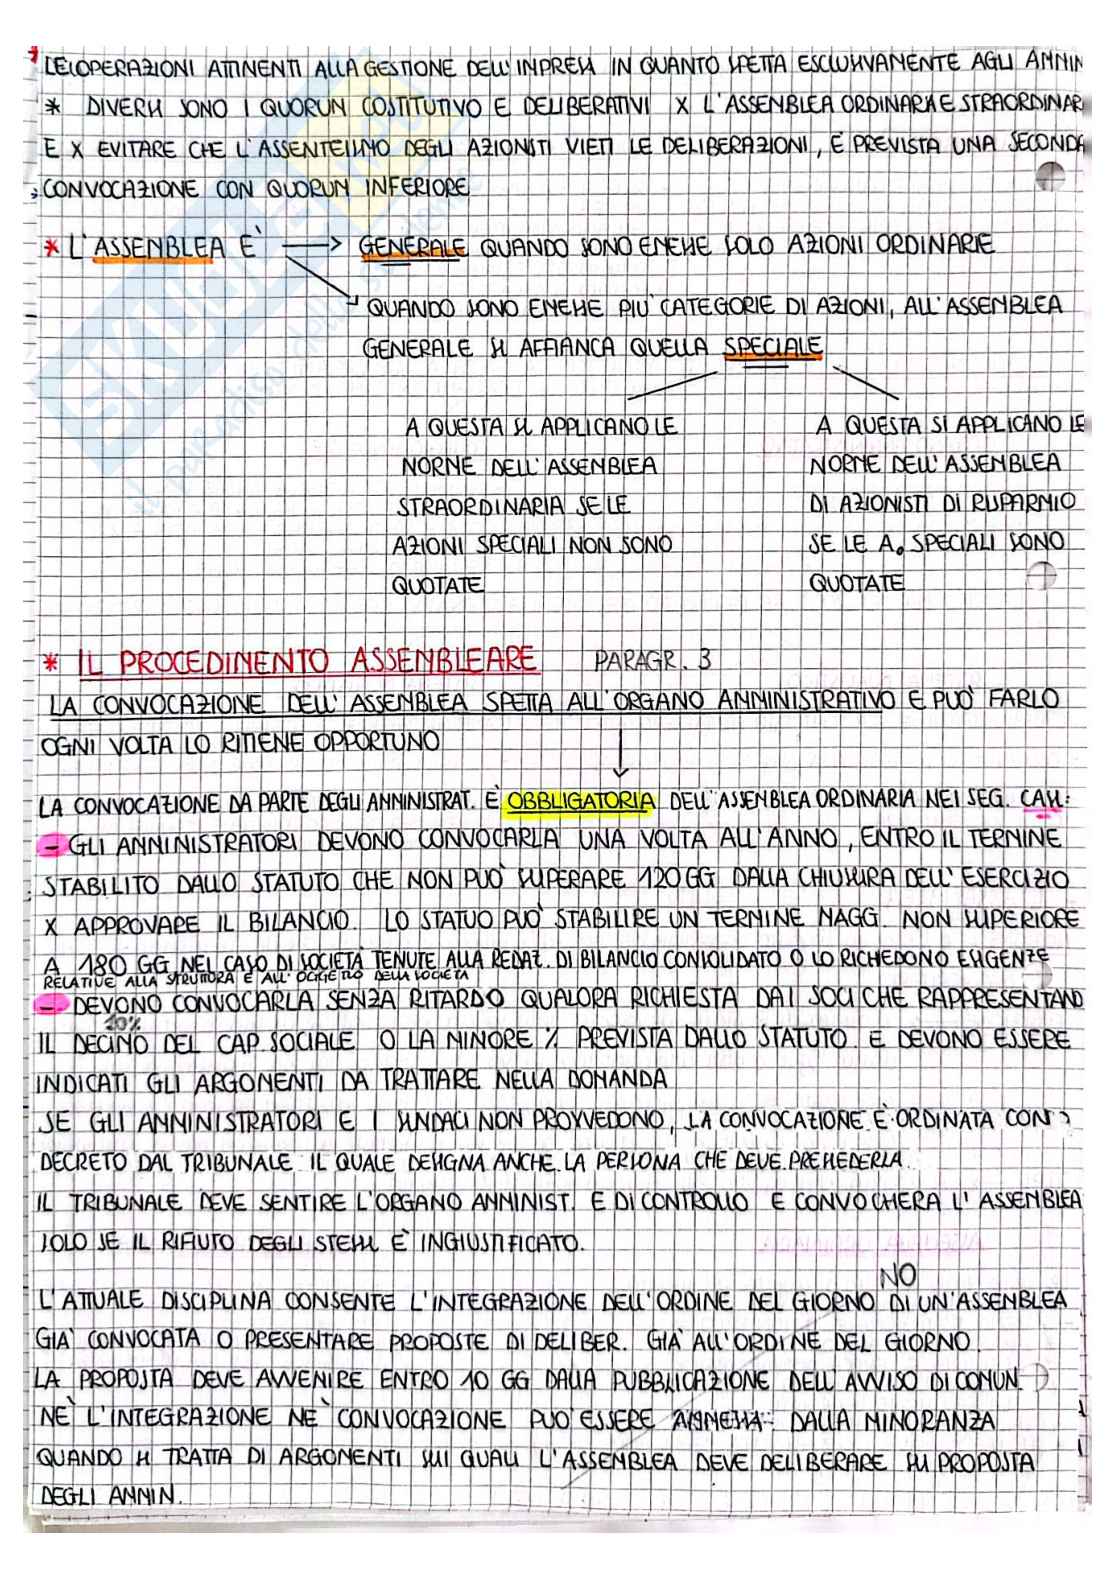 DELOPERAZIONI ATTINENTI ALLA GESTIONE DELL'IMPRESA IN QUANTO SPETTA ESCLUSIVAMENTE AGLI AMMIN
* DIVERSI SONO I QUORUM COSTITUTIVO E DELIBERATIVI X L'ASSEMBLEA ORDINARIA E STRAORDINAR
E X EVITARE CHE L'ASSENTEISMO DEGLI AZIONISTI VIETI LE DELIBERAZIONI, È PREVISTA UNA SECONDA
CONVOCAZIONE CON QUORUM INFERIORE
* L'ASSEMBLEA E' → GENERALE QUANDO SONO EMESSE SOLO AZIONI ORDINARIE
QUANDO SONO EMESSE PIU' CATEGORIE DI AZIONI, ALL'ASSEMBLEA
GENERALE SI AFFIANCA QUELLA SPECIALE
A QUESTA SI APPLICANO LE
NORME DELL'ASSEMBLEA
STRAORDINARIA SE LE
AZIONI SPECIALI NON SONO
QUOTATE
A QUESTA SI APPLICANO LE
NORME DELL'ASSEMBLEA
DI AZIONISTI DI RISPARMIO
SE LE A. SPECIALI SONO
QUOTATE
* IL PROCEDIMENTO ASSEMBLEARE PARAGR. 3
LA CONVOCAZIONE DELL'ASSEMBLEA SPETTA ALL'ORGANO AMMINISTRATIVO E PUÒ FARLO
OGNI VOLTA LO RITIENE OPPORTUNO
LA CONVOCAZIONE DA PARTE DEGLI AMMINISTRAT. È OBBLIGATORIA DELL'ASSEMBLEA ORDINARIA NEI SEG. CASI:
- GLI AMMINISTRATORI DEVONO CONVOCARLA UNA VOLTA ALL'ANNO, ENTRO IL TERMINE
STABILITO DALLO STATUTO CHE NON PUO' SUPERARE 120 GG DALLA CHIUSURA DELL'ESERCIZIO
X APPROVARE IL BILANCIO. LO STATUO PUO' STABILIRE UN TERMINE MAGG. NON SUPERIORE
A 180 GG NEL CASO DI SOCIETÀ TENUTE ALLA REDAZ. DI BILANCIO CONSOLIDATO O LO RICHIEDONO ESIGENZE
RELATIVE ALLA STRUTTURA E ALL'OGGETTO DELLA SOCIETÀ
- DEVONO CONVOCARLA SENZA RITARDO QUALORA RICHIESTA DAI SOCI CHE RAPPRESENTANO
10%
IL DECIMO DEL CAP. SOCIALE O LA MINORE % PREVISTA DALLO STATUTO. E DEVONO ESSERE
INDICATI GLI ARGOMENTI DA TRATTARE NELLA DOMANDA
SE GLI AMMINISTRATORI E I SINDACI NON PROVVEDONO, LA CONVOCAZIONE È ORDINATA CON
DECRETO DAL TRIBUNALE IL QUALE DESIGNA ANCHE LA PERSONA CHE DEVE PRESIEDERLA.
IL TRIBUNALE DEVE SENTIRE L'ORGANO AMMINIST. E DI CONTROLLO E CONVOCHERÀ L'ASSEMBLEA
SOLO SE IL RIFIUTO DEGLI STESSI È INGIUSTIFICATO.
NO
L'ATTUALE DISCIPLINA CONSENTE L'INTEGRAZIONE DELL'ORDINE DEL GIORNO DI UN'ASSEMBLEA
GIA' CONVOCATA O PRESENTARE PROPOSTE DI DELIBER. GIÀ ALL'ORDINE DEL GIORNO.
LA PROPOSTA DEVE AVVENIRE ENTRO 10 GG DALLA PUBBLICAZIONE DELL'AVVISO DI COMUN.
NE' L'INTEGRAZIONE NE' CONVOCAZIONE PUO' ESSERE AMMESSA DALLA MINORANZA
QUANDO SI TRATTA DI ARGOMENTI SUI QUALI L'ASSEMBLEA DEVE DELIBERARE SU PROPOSTA
DEGLI AMMIN.